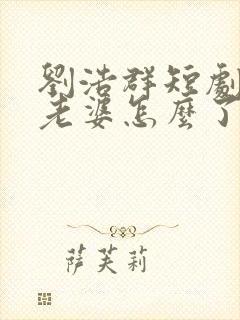 劉浩群短劇
老婆怎麼了
萨芙莉